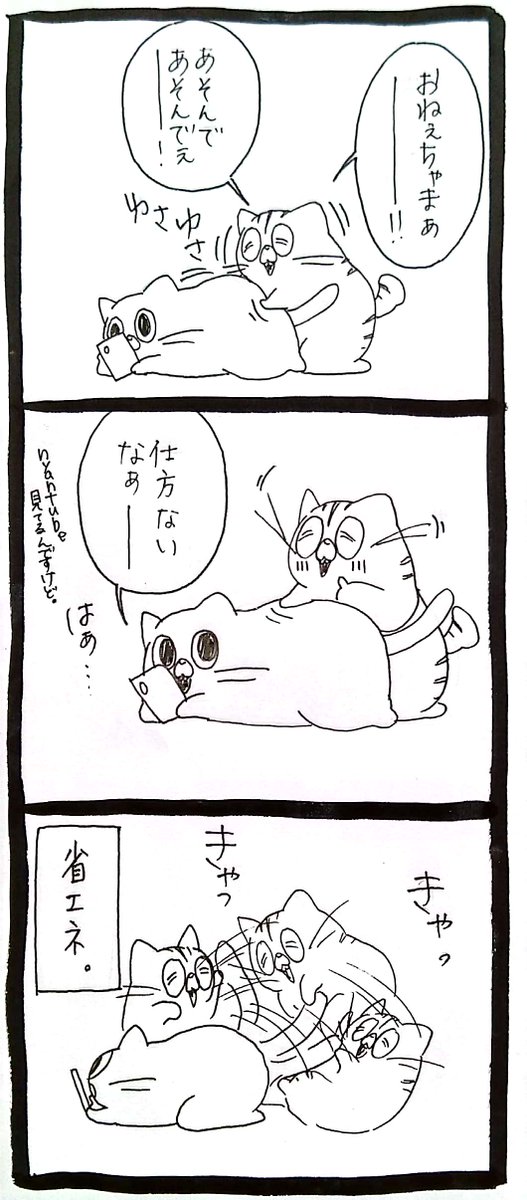 おねぇちゃまぁ――!!
あそんで
あそんでぇ――!
ゆさゆさ
仕方ない
なぁ――
nyantube
見てるんですけど。
はぁ…
省エネ。
きゃっ
きゃっ